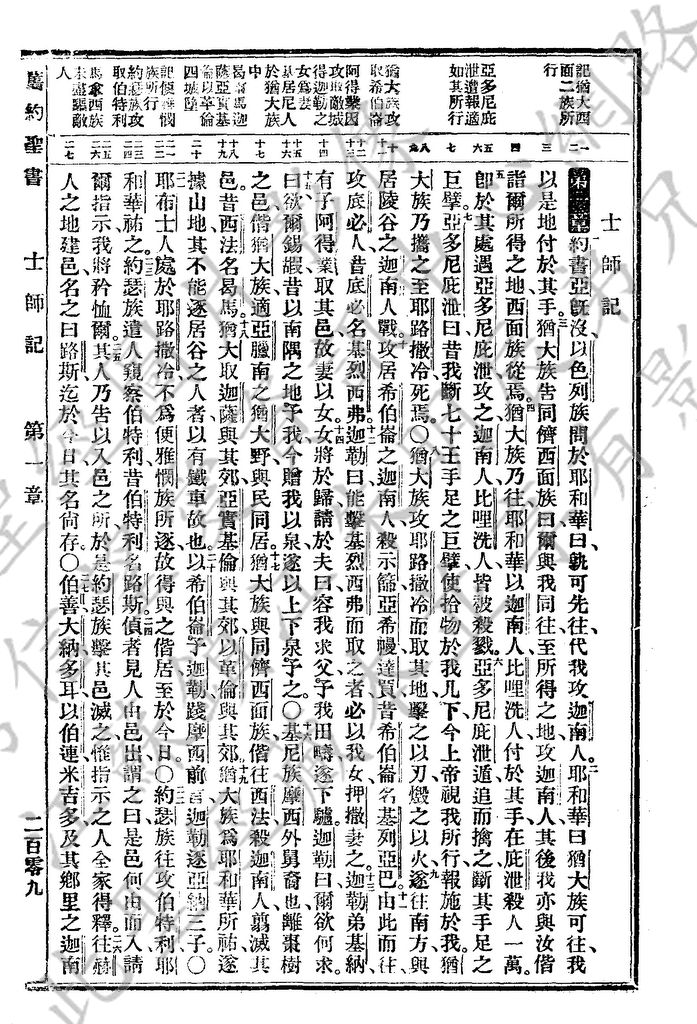 士師記
記猶大西
面二族所
行
亞多尼庇
泄遭報適
如其所行
猶大族攻
取希伯崙
攻取敵城
得迦勒之
女爲妻
基尼人
於猶大族
中
四城
記便雅憫
族所行
約瑟族攻
取伯特利
馬拿西族
未盡驅敵
人
第一章約書亞旣沒以色列族問於耶和華曰孰可先往代我攻迦南人耶和華曰猶大族可往我
以是地付於其手猶大族告同儕西面族曰爾與我同往至所得之地攻迦南人其後我亦與汝偕
詣爾所得之地西面族從焉猶大族乃往耶和華以迦南人比哩洗人付於其手在庇泄殺人一萬
卽於其處遇亞多尼庇泄攻之迦南人比哩洗人皆被殺戮亞多尼庇泄遁追而擒之斷其手足之
巨擘亞多尼庇泄曰昔我斷七十王手足之巨擘使拾物於我几下今上帝視我所行報施於我猶
大族乃攜之至耶路撒冷死焉〇猶大族攻耶路撒冷而取其地擊之以刃燬之以火遂往南方與
居陵谷之迦南人戰攻居希伯崙之迦南人殺示篩亞希幔達買昔希伯崙名基列亞巴由此而往
攻底必人昔底必名基烈西弗迦勒曰能擊基烈西弗而取之者必以我女押撒妻之迦勒弟基納
有子阿得業取其邑故妻以女女將於歸請於夫曰容我求父予我田疇遂下驢迦勒曰爾欲何求
曰欲爾錫嘏昔以南隅之地予我今贈我以泉遂以上下泉予之〇基尼族摩西外舅裔也離棗樹
之邑偕猶大族適亞臘南之猶大野與民同居猶大族與同儕西面族偕往西法殺迦南人翦滅其
邑昔西法名曷馬猶大取迦薩與其郊亞實基倫與其郊以革倫與其郊猶大族爲耶和華所祐遂
據山地其不能逐居谷之人者以有鐵車故也以希伯崙予迦勒踐摩西前言迦勒逐亞納三子〇
耶布士人處於耶路撒冷不爲便雅憫族所逐故得與之偕居至於今日〇約瑟族往攻伯特利耶
和華祐之約瑟族遣人窺察伯特利昔伯特利名路斯偵者見人由邑出謂之曰是邑何由而入請
爾指示我將矜恤爾其人乃告以入邑之所於是約瑟族擊其邑滅之惟指示之人全家得釋往赫
人之地建邑名之曰路斯迄於今日其名尙存〇伯善大納多耳以伯連米吉多及其鄉里之迦南
舊約聖書 士師記 第一章 二百零九